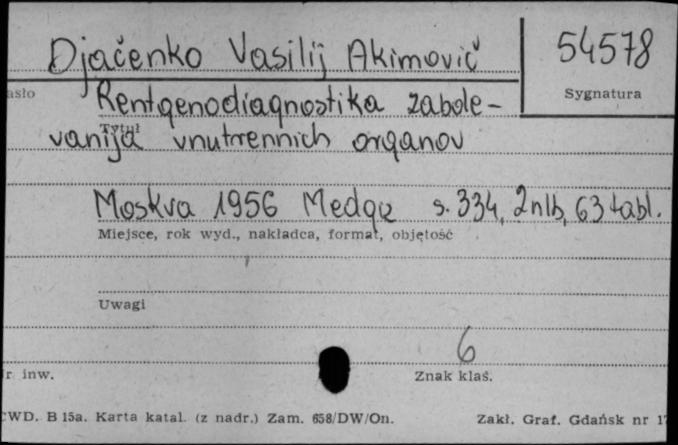 Djačenko Vasilij Akimovič
54578
asło
Sygnatura
Rentgenodiagnostika zabole-
Tytuł
vanija vnutrennich organov
Moskva 1956 Medgiz s. 334, 2nlb, 63 tabl.
Miejsce, rok wyd., nakładca, format, objętość
Uwagi
6
r inw.
Znak klas.
WD. B 15a. Karta katal. (z nadr.) Zam. 658/DW/On.
Zakł. Graf. Gdańsk nr 1